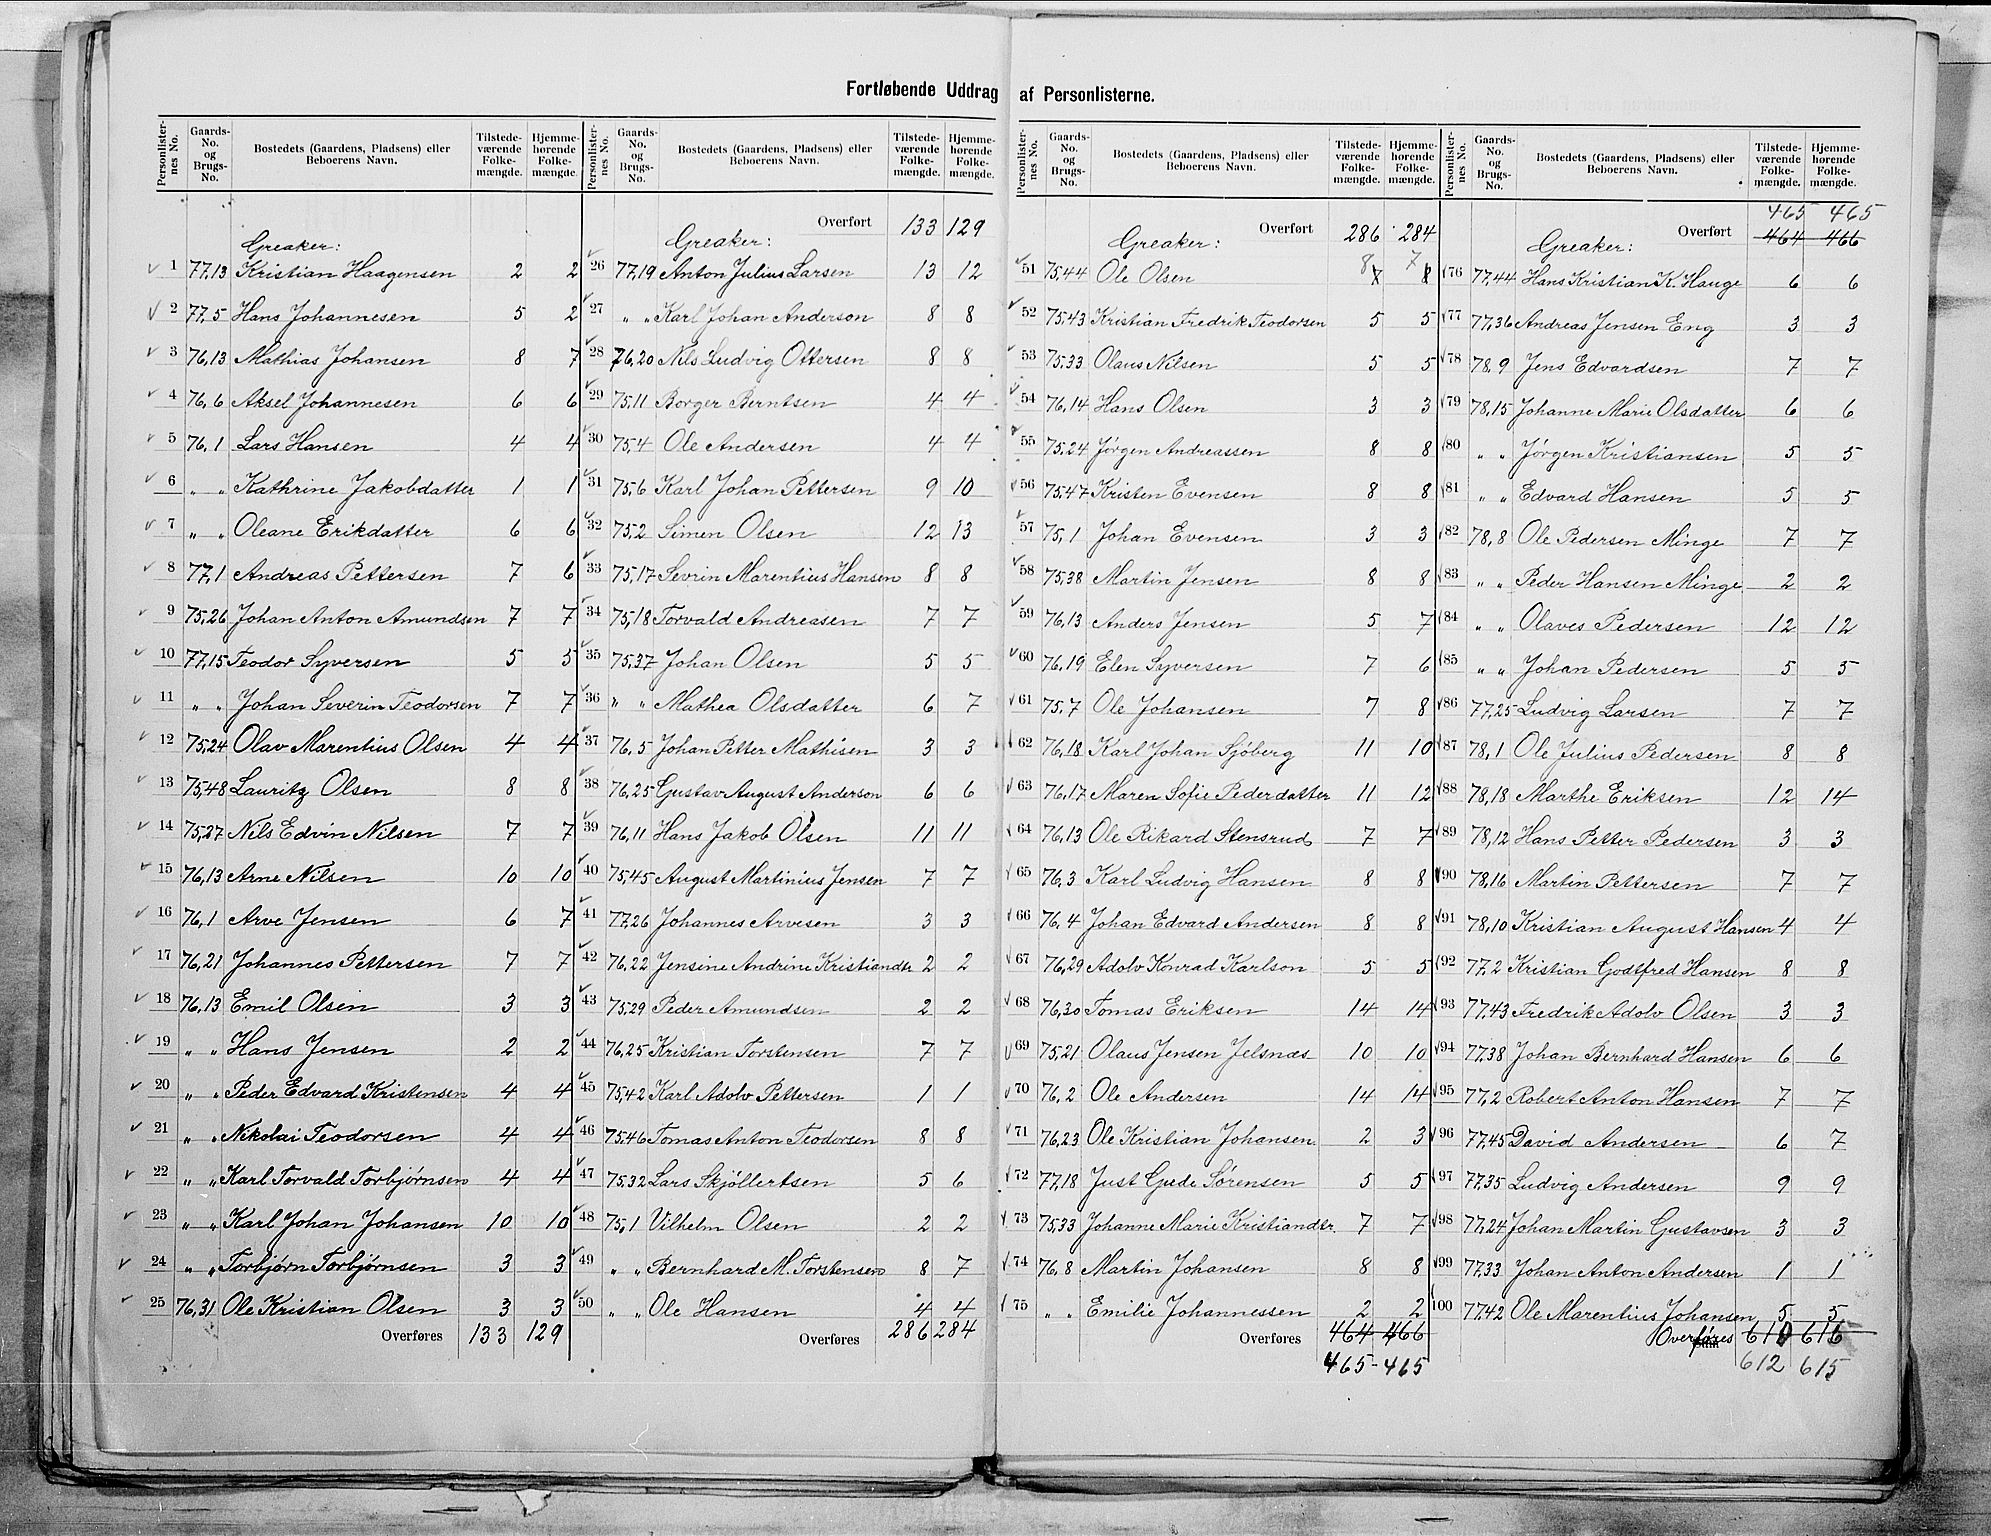 Fortløbende Uddrag af Personlisterne.
Personlister-nes No. Gaards-No. og Brugs-No. Bostedets (Gaardens, Pladsens) eller Beboerens Navn. Tilstede-værende Folke-mængde. Hjemme-hørende Folke-mængde.
Greaker:
1 77,13 Kristian Haagensen 2 2
2 77,5 Hans Johannesen 5 2
3 76,13 Mathias Johansen 8 7
4 76,6 Aksel Johannesen 6 6
5 76,1 Lars Hansen 4 4
6 " " Kathrine Jakobdatter 1 1
7 " " Oleane Erikdatter 6 6
8 77,1 Andreas Pettersen 7 6
9 75,26 Johan Anton Amundsen 7 7
10 77,15 Teodor Syversen 5 5
11 " " Johan Severin Teodorsen 7 7
12 75,24 Olav Marentius Olsen 4 4
13 75,48 Lauritz Olsen 8 8
14 75,27 Nils Edvin Nilsen 7 7
15 76,13 Arne Nilsen 10 10
16 76,1 Arve Jensen 6 7
17 76,21 Johannes Pettersen 7 7
18 76,13 Emil Olsen 3 3
19 " " Hans Jensen 2 2
20 " " Peder Edvard Kristensen 4 4
21 " " Nikolai Teodorsen 4 4
22 " " Karl Torvald Torbjørnsen 4 4
23 " " Karl Johan Johansen 10 10
24 " " Torbjørn Torbjørnsen 3 3
25 76,31 Ole Kristian Olsen 3 3
Overføres 133 129
Personlister-nes No. Gaards-No. og Brugs-No. Bostedets (Gaardens, Pladsens) eller Beboerens Navn. Tilstede-værende Folke-mængde. Hjemme-hørende Folke-mængde.
Overført 133 129
Greaker:
26 77,19 Anton Julius Larsen 13 12
27 " " Karl Johan Anderson 8 8
28 76,20 Nils Ludvig Ottersen 8 8
29 75,11 Borger Berntsen 4 4
30 75,4 Ole Andersen 4 4
31 75,6 Karl Johan Pettersen 9 10
32 75,2 Simen Olsen 12 13
33 75,17 Sevrin Marentius Hansen 8 8
34 75,18 Torvald Andreasen 7 7
35 75,37 Johan Olsen 5 5
36 " " Mathea Olsdatter 6 7
37 76,5 Johan Petter Mathisen 3 3
38 76,25 Gustav August Anderson 6 6
39 76,11 Hans Jakob Olsen 11 11
40 75,45 August Martinius Jensen 7 7
41 77,26 Johannes Arvesen 3 3
42 76,22 Jensine Andrine Kristiandtr 2 2
43 75,29 Peder Amundsen 2 2
44 76,25 Kristian Torstensen 7 7
45 75,42 Karl Adolv Pettersen 1 1
46 75,46 Tomas Anton Teodorsen 8 8
47 75,32 Lars Skjöllertsen 5 6
48 75,1 Vilhelm Olsen 2 2
49 " " Bernhard M. Torstensen 8 7
50 " " Ole Hansen 4 4
Overføres 286 284
Personlister-nes No. Gaards-No. og Brugs-No. Bostedets (Gaardens, Pladsens) eller Beboerens Navn. Tilstede-værende Folke-mængde. Hjemme-hørende Folke-mængde.
Overført 286 284
Greaker:
8 7
51 75,44 Ole Olsen 7 8
52 75,43 Kristian Fredrik Teodorsen 5 5
53 75,33 Olaus Nilsen 5 5
54 76,14 Hans Olsen 3 3
55 75,24 Jørgen Andreassen 8 8
56 75,47 Kristen Evensen 8 8
57 75,1 Johan Evensen 3 3
58 75,38 Martin Jensen 8 8
59 76,13 Anders Jensen 5 7
60 76,19 Elen Syversen 7 6
61 75,7 Ole Johansen 7 8
62 76,18 Karl Johan Sjöberg 11 10
63 76,17 Maren Sofie Pederdatter 11 12
64 76,13 Ole Rikard Stensrud 7 7
65 76,3 Karl Ludvig Hansen 8 8
66 76,4 Johan Edvard Andersen 8 8
67 76,29 Adolv Konrad Karlson 5 5
68 76,30 Tomas Eriksen 14 14
69 75,21 Olaus Jensen Jelsnæs 10 10
70 76,2 Ole Andersen 14 14
71 76,23 Ole Kristian Johansen 2 3
72 77,18 Just Gude Sørensen 5 5
73 75,33 Johanne Marie Kristiandtr. 7 7
74 76,8 Martin Johansen 8 8
75 " " Emilie Johannessen 2 2
Overføres 464 466
465 - 465
Personlister-nes No. Gaards-No. og Brugs-No. Bostedets (Gaardens, Pladsens) eller Beboerens Navn. Tilstede-værende Folke-mængde. Hjemme-hørende Folke-mængde.
465 465
Overført 464 466
Greaker:
76 77,44 Hans Kristian K. Hauge 6 6
77 77,36 Andreas Jensen Eng 3 3
78 78,9 Jens Edvardsen 7 7
79 78,15 Johanne Marie Olsdatter 6 6
80 " " Jørgen Kristiansen 5 5
81 " " Edvard Hansen 5 5
82 78,8 Ole Pedersen Minge 7 7
83 " " Peder Hansen Minge 2 2
84 " " Olaves Pedersen 12 12
85 " " Johan Pedersen 5 5
86 77,25 Ludvig Larsen 7 7
87 78,1 Ole Julius Pedersen 8 8
88 78,18 Marthe Eriksen 12 14
89 78,12 Hans Petter Pedersen 3 3
90 78,16 Martin Pettersen 7 7
91 78,10 Kristian August Hansen 4 4
92 77,2 Kristian Godtfred Hansen 8 8
93 77,43 Fredrik Adolv Olsen 3 3
94 77,38 Johan Bernhard Hansen 6 6
95 77,2 Robert Anton Hansen 7 7
96 77,45 David Andersen 6 7
97 77,35 Ludvig Andersen 9 9
98 77,24 Johan Martin Gustavsen 3 3
99 77,33 Johan Anton Andersen 1 1
100 77,42 Ole Marentius Johansen 5 5
Overføres 616
612 615